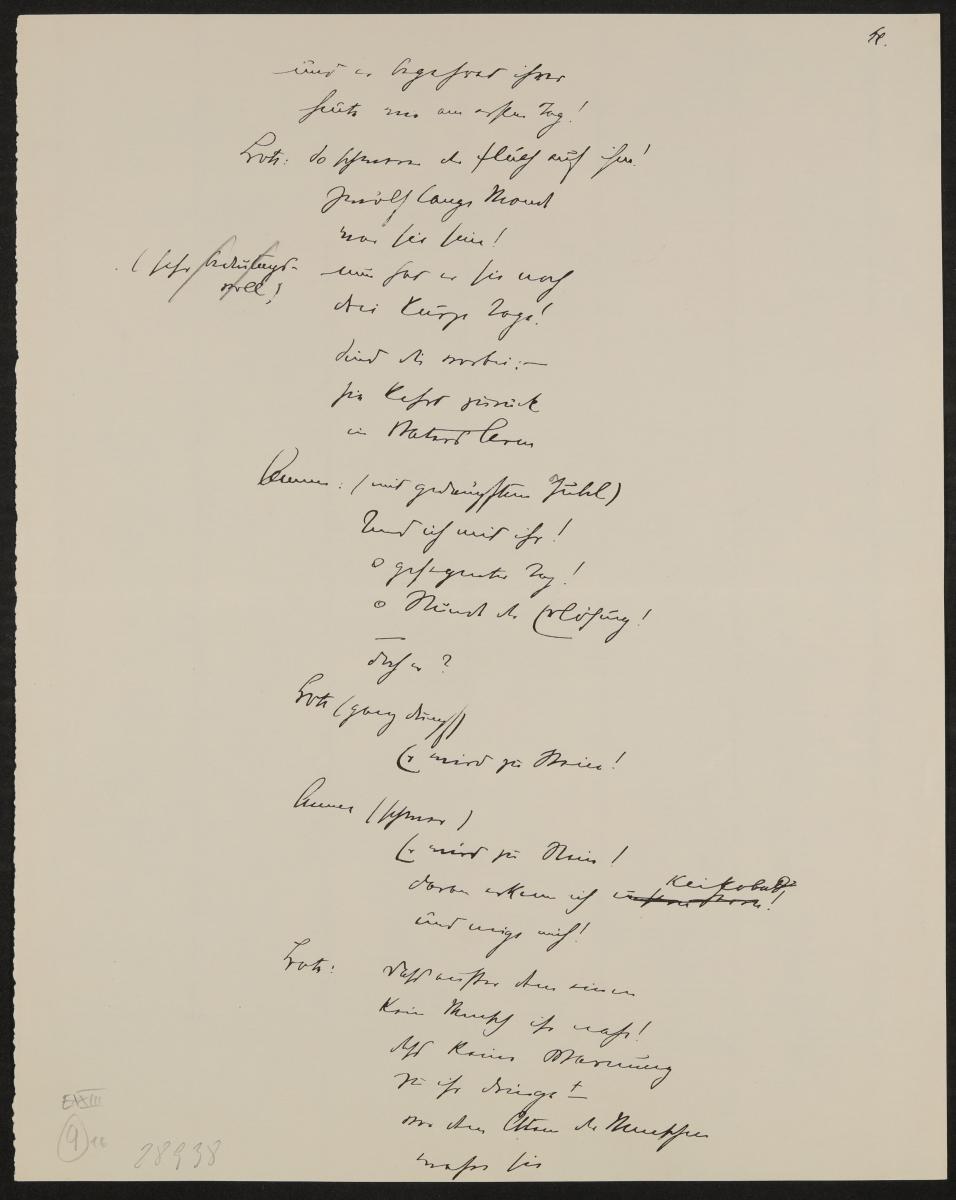 5e.
und er begehrt ihrer
heute wie am ersten Tag!
Bote: So schmerze der Fluch auf ihn!
Zwölf lange Monde
war sie sein!
(sehr bedeutungs-
voll!)
nun hat er sie noch
drei kurze Tage!
Sind die vorbei: –
sie kehrt zurück
in Vaters Arme
Amme: (mit gedämpftem Jubel)
Und ich mit ihr!
o gesegneter Tag!
o Stunde der Erlösung!
doch er?
Bote (ganz dumpf)
Er wird zu Stein!
Amme (schwer)
Er wird zu Stein!
daran erkenn ich Keikobad!
und neige mich!
Bote: dass ausser dem einen
kein Mensch ihr nah!
dass keine Warnung
zu ihr dringe +
vor dem Athem der Menschen
wahre sie
EXXIII
9
28938